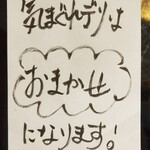 気まぐれデリは
おまかせ
になります!